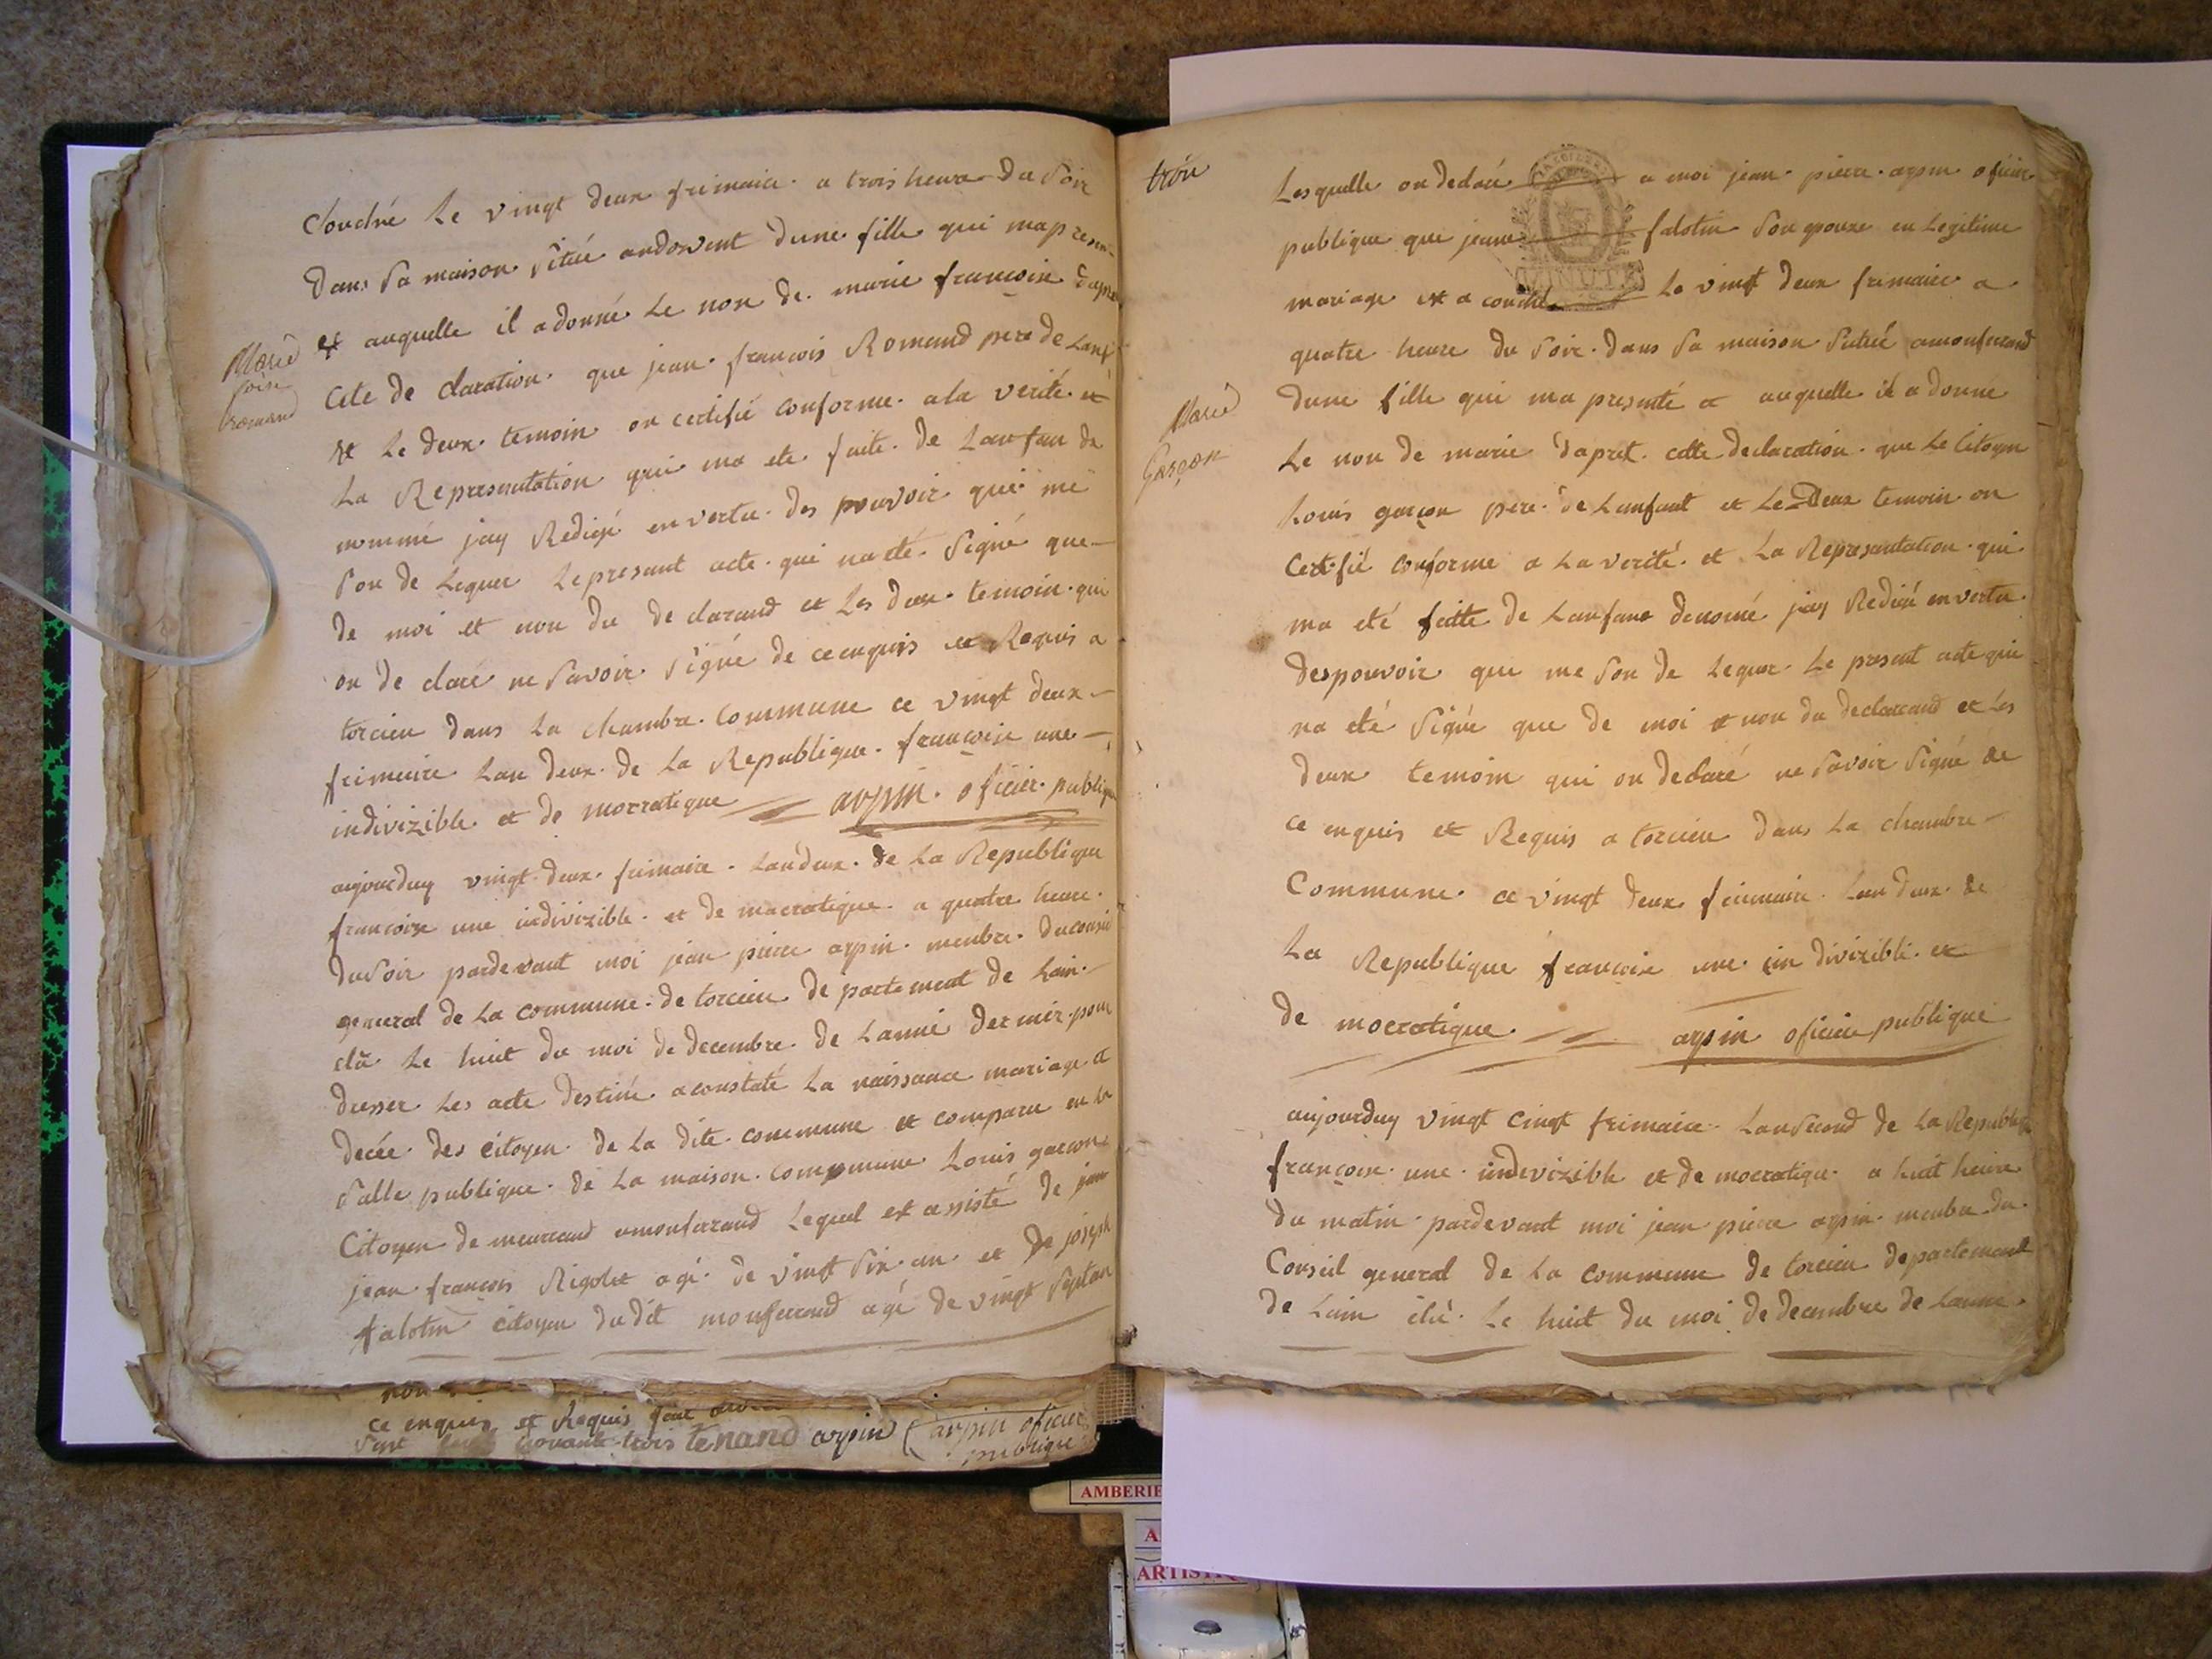 Couchié Le vingt deux frimaire a trois heure Du Soir
Dans Sa maison Sitüé andorent Dune fille qui ma presen-
et auquelle il a donné Le non de marie francoise Dapre
Cete de claration que jean francois Romand pere de Lanf
Marie
foise
romand
et Le deux temoin on certifié conforme a la verité et
La Representation qui ma ete faite de Lanfan de
nommé jay Redigé en vertu des pouvoir qui me
Son de Leguer Le presant acte qui na eté Signé que
de moi et non du de clarand et Les deux temoin qui
on de claré ne Savoir Signé de ce enquis et Requis a
torcieu dans La chambre Commune ce vingt deux
frimaire Lan deux de La Republique francoise une
indivizible et de mocratique arpin oficier publique
aujourduy vingt deux frimaire Lan deux de La Republique
francoise une indivizible et de mocratique a quatre heure
du Soir pardevant moi jean piere arpin menbre du consei
general de La commune de torcieu de partement de Lain
elü Le huit du moi de decembre de Lanné dernier pour
dresser Les acte destiné a constaté La naissance mariage et
decée des citoyen de La dite commune et comparu en la
Salle publique de La maison commune Louis garcon
Citoyen de meurand a monferrand Lequel est assisté de
jean francois Rigolet agé de vingt Six an et de joseph
falotin citoyen dudit monferrand agé de vingt Septan
non
ce enquis et Requis
trois tenand arpin arpin oficier
publique
troi
Lesquelle on declaré a moi jean piere arpin oficier
publique que jeanne falotin Son epouze en Legitime
mariage et a couché Le vingt deux frimaire a
quatre heure du Soir Dans Sa maison Sitüé a monferrand
Dune fille qui ma presenté et auquelle il a donné
Marie
Garçon
Le non de marie Dapret cette declaration que Le Citoyen
Louis garçon pere de Lanfant et Le Deux temoin on
Certifié conforme a La verité et La Representation qui
ma eté faitte de Lanfant denomé jay Redigé en vertu
des pouvoir que me Son de Leguer Le present acte qui
na eté Signé que de moi et non du declarand et Les
deux temoin qui on declaré ne Savoir Signé de
ce enquis et Requis a torcieu dans La chambre
Commune ce vingt deux frimaire Lan deux de
La Republique francoise une in divizible et
de mocratique arpin oficier publique
aujourduy vingt cinqt frimaire Lan Second de La Republique
françoise une indevizible et de mocratique a huit heure
du matin pardevant moi jean piere arpin menbre du
Conseil general de La commune de torcieu departement
de Lain élü Le huit du moi de decembre de Lanné
MINUTE
AMBERIE
A
ARTISTIQ